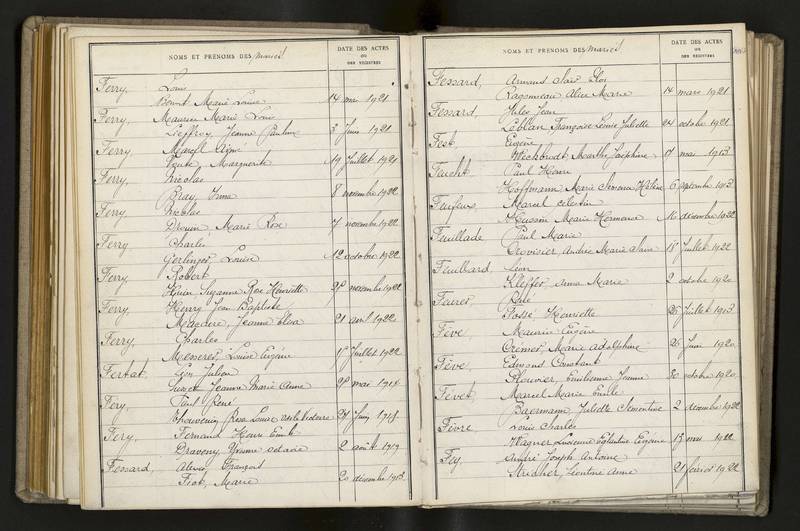 NOMS ET PRÉNOMS DES mariés
DATE DES ACTES
OU
DES REGISTRES
Ferry, Louis
Marie Louise 14 mai 1921
Ferry, Maurice Marie Louis
Lieffroy, Jeanne Pauline 3 Juin 1921
Ferry, Marcell Aimé
Marguerite 19 Juillet 1921
Ferry, Nicolas
Bray, Irma 8 novembre 1922
Ferry Nicolas
Drouin, Marie Rose 7 novembre 1922
Ferry Charles
Gerlinger Louise 12 octobre 1922
Ferry, Robert
Suzanne Rose Henriette novembre 1922
Ferry, Henry Jean Baptiste
Jeanne Elisa 21 avril 1922
Ferry, Charles
Louise Eugénie Juillet 1922
Fertat, Julien
Jeanne Marie Anne mai 1914
Féry, Paul René
Thouvenin, Rose Louise Juin 1918
Féry, Fernand Henri Emile
Draveny, Yvonne 2 août 1919
Fessard, François
Fiot, Marie 20 décembre 1913
NOMS ET PRÉNOMS DES mariés
DATE DES ACTES
OU
DES REGISTRES
Fessard, Armand
Ragonneau Alice Marie 14 mars 1921
Fessard, Jules Jean
Leblan, Françoise Juliette 24 octobre 1921
Fest Eugène
Marthe Joséphine 17 mai 1913
Feucht Paul Henri
Hoffmann, Marie Hélène 6 septembre 1913
Marcel Célestin
Husson Marie 16 décembre 1922
Feuillade Paul Marie
Crovisier, Andrée Marie 18 Juillet 1922
Feulbard, Léon
Kleffer, Anna Marie 2 octobre 1920
Possé Henriette 26 Juillet 1913
Fève, Maurice Eugène
Crémer, Marie Adolphine 26 Juin 1920
Fève, Edmond Constant
Plouvier, Emilienne Jeanne 30 octobre 1920
Fevet Marcel Marie Emile
Baermann, Juliette Clémentine 2 décembre 1922
Fèvre Louis Charles
Wagner Lucienne Eglantine Eugénie 13 mai 1922
Fey, André Joseph Antoine
Léontine Anne 21 février 1922